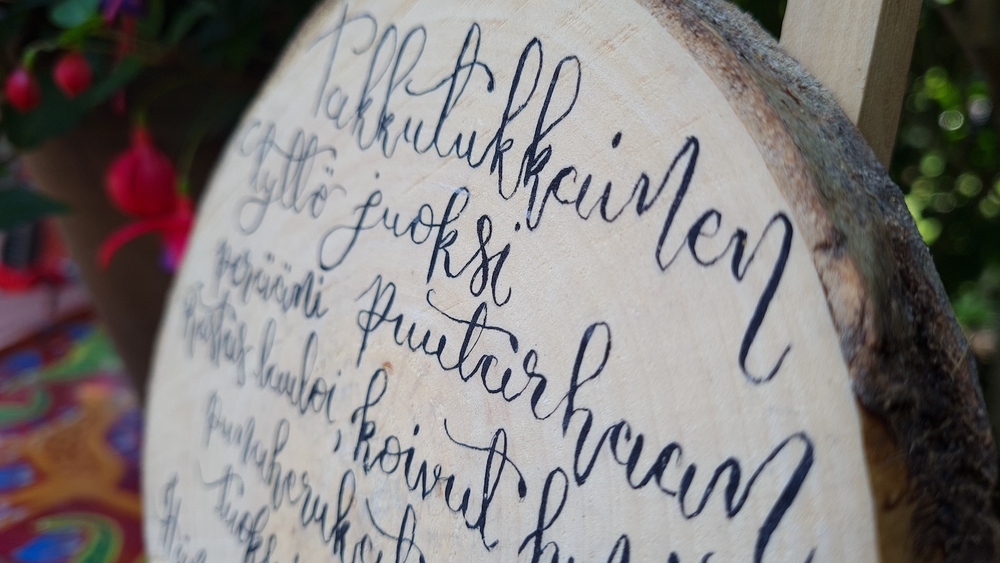 Takkutukkainen
tyttö juoksi
perääni puutarhaan
Rastas lauloi, koivut
punaherukat
tuok